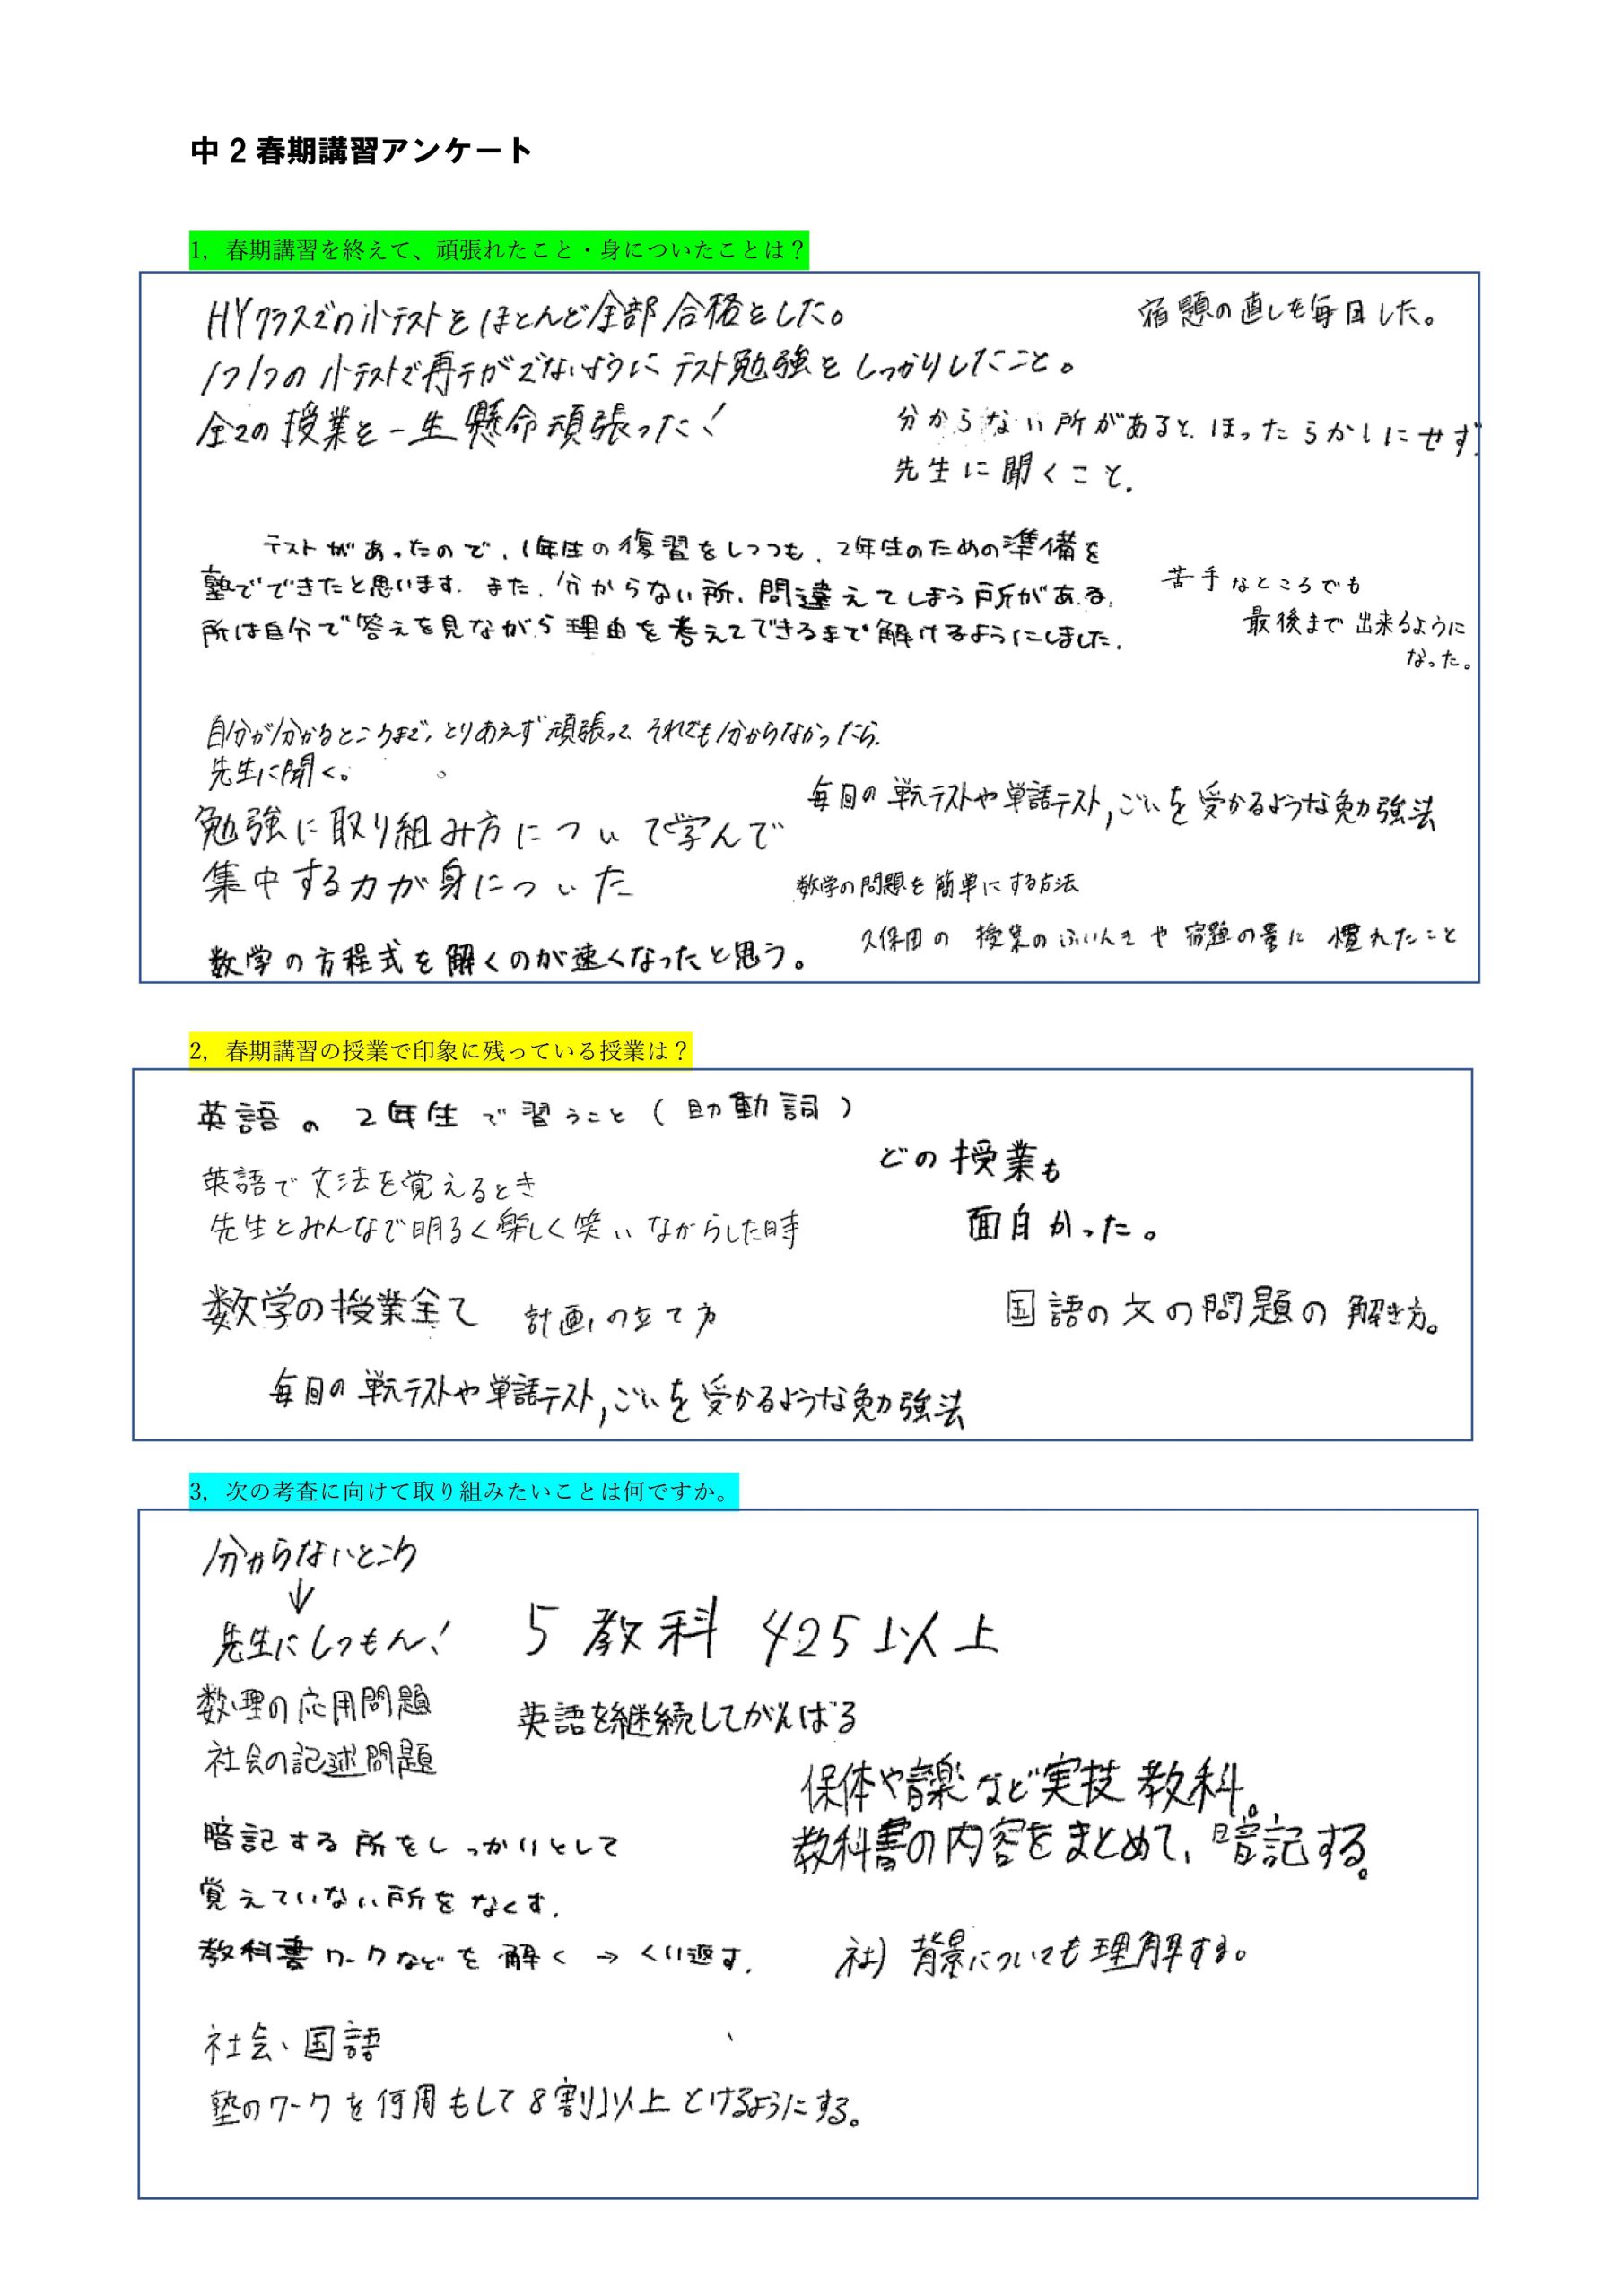 中2春期講習アンケート
1，春期講習を終えて、頑張れたこと・身についたことは？
HYクラスでの小テストをほとんど全部合格をした。
宿題の直しを毎日した。
1つ1つの小テストで再テがでないようにテスト勉強をしっかりしたこと。
全ての授業を一生懸命頑張った！
分からない所があると、ほったらかしにせず、
先生に聞くこと。
テストがあったので、1年生の復習をしつつも、2年生のための準備を
塾でできたと思います。また、分からない所、問違えてしまう所がある
所は自分で答えを見ながら理由を考えてできるまで解けるようにしました。
苦手なところでも
最後まで出来るように
なった。
自分が分かるところまで、とりあえず頑張って、それでも分からなかったら、
先生に聞く。
毎日の単元テストや単語テスト,ごいを受かるような勉強法
勉強に取り組み方について学んで
集中する力が身についた
数学の問題を簡単にする方法
久保田の授業のふいんきや宿題の量に慣れたこと
数学の方程式を解くのが速くなったと思う。
2，春期講習の授業で印象に残っている授業は？
英語の2年生で習うこと（助動詞）
どの授業も
面白かった。
英語で文法を覚えるとき
先生とみんなで明るく楽しく笑いながらした時
数学の授業全て
計画の立て方
国語の文の問題の解き方。
毎日の単元テストや単語テスト,ごいを受かるような勉強法
3，次の考査に向けて取り組みたいことは何ですか。
分からないところ
↓
先生にしつもん！
5教科 425以上
数理の応用問題
社会の記述問題
英語を継続してがんばる
保体や音楽など実技教科。
教科書の内容をまとめて、暗記する。
暗記する所をしっかりとして
覚えていない所をなくす。
教科書ワークなどを解く→くり返す。
社）背景についても理解する。
社会、国語
塾のワークを何周もして8割以上とけるようにする。